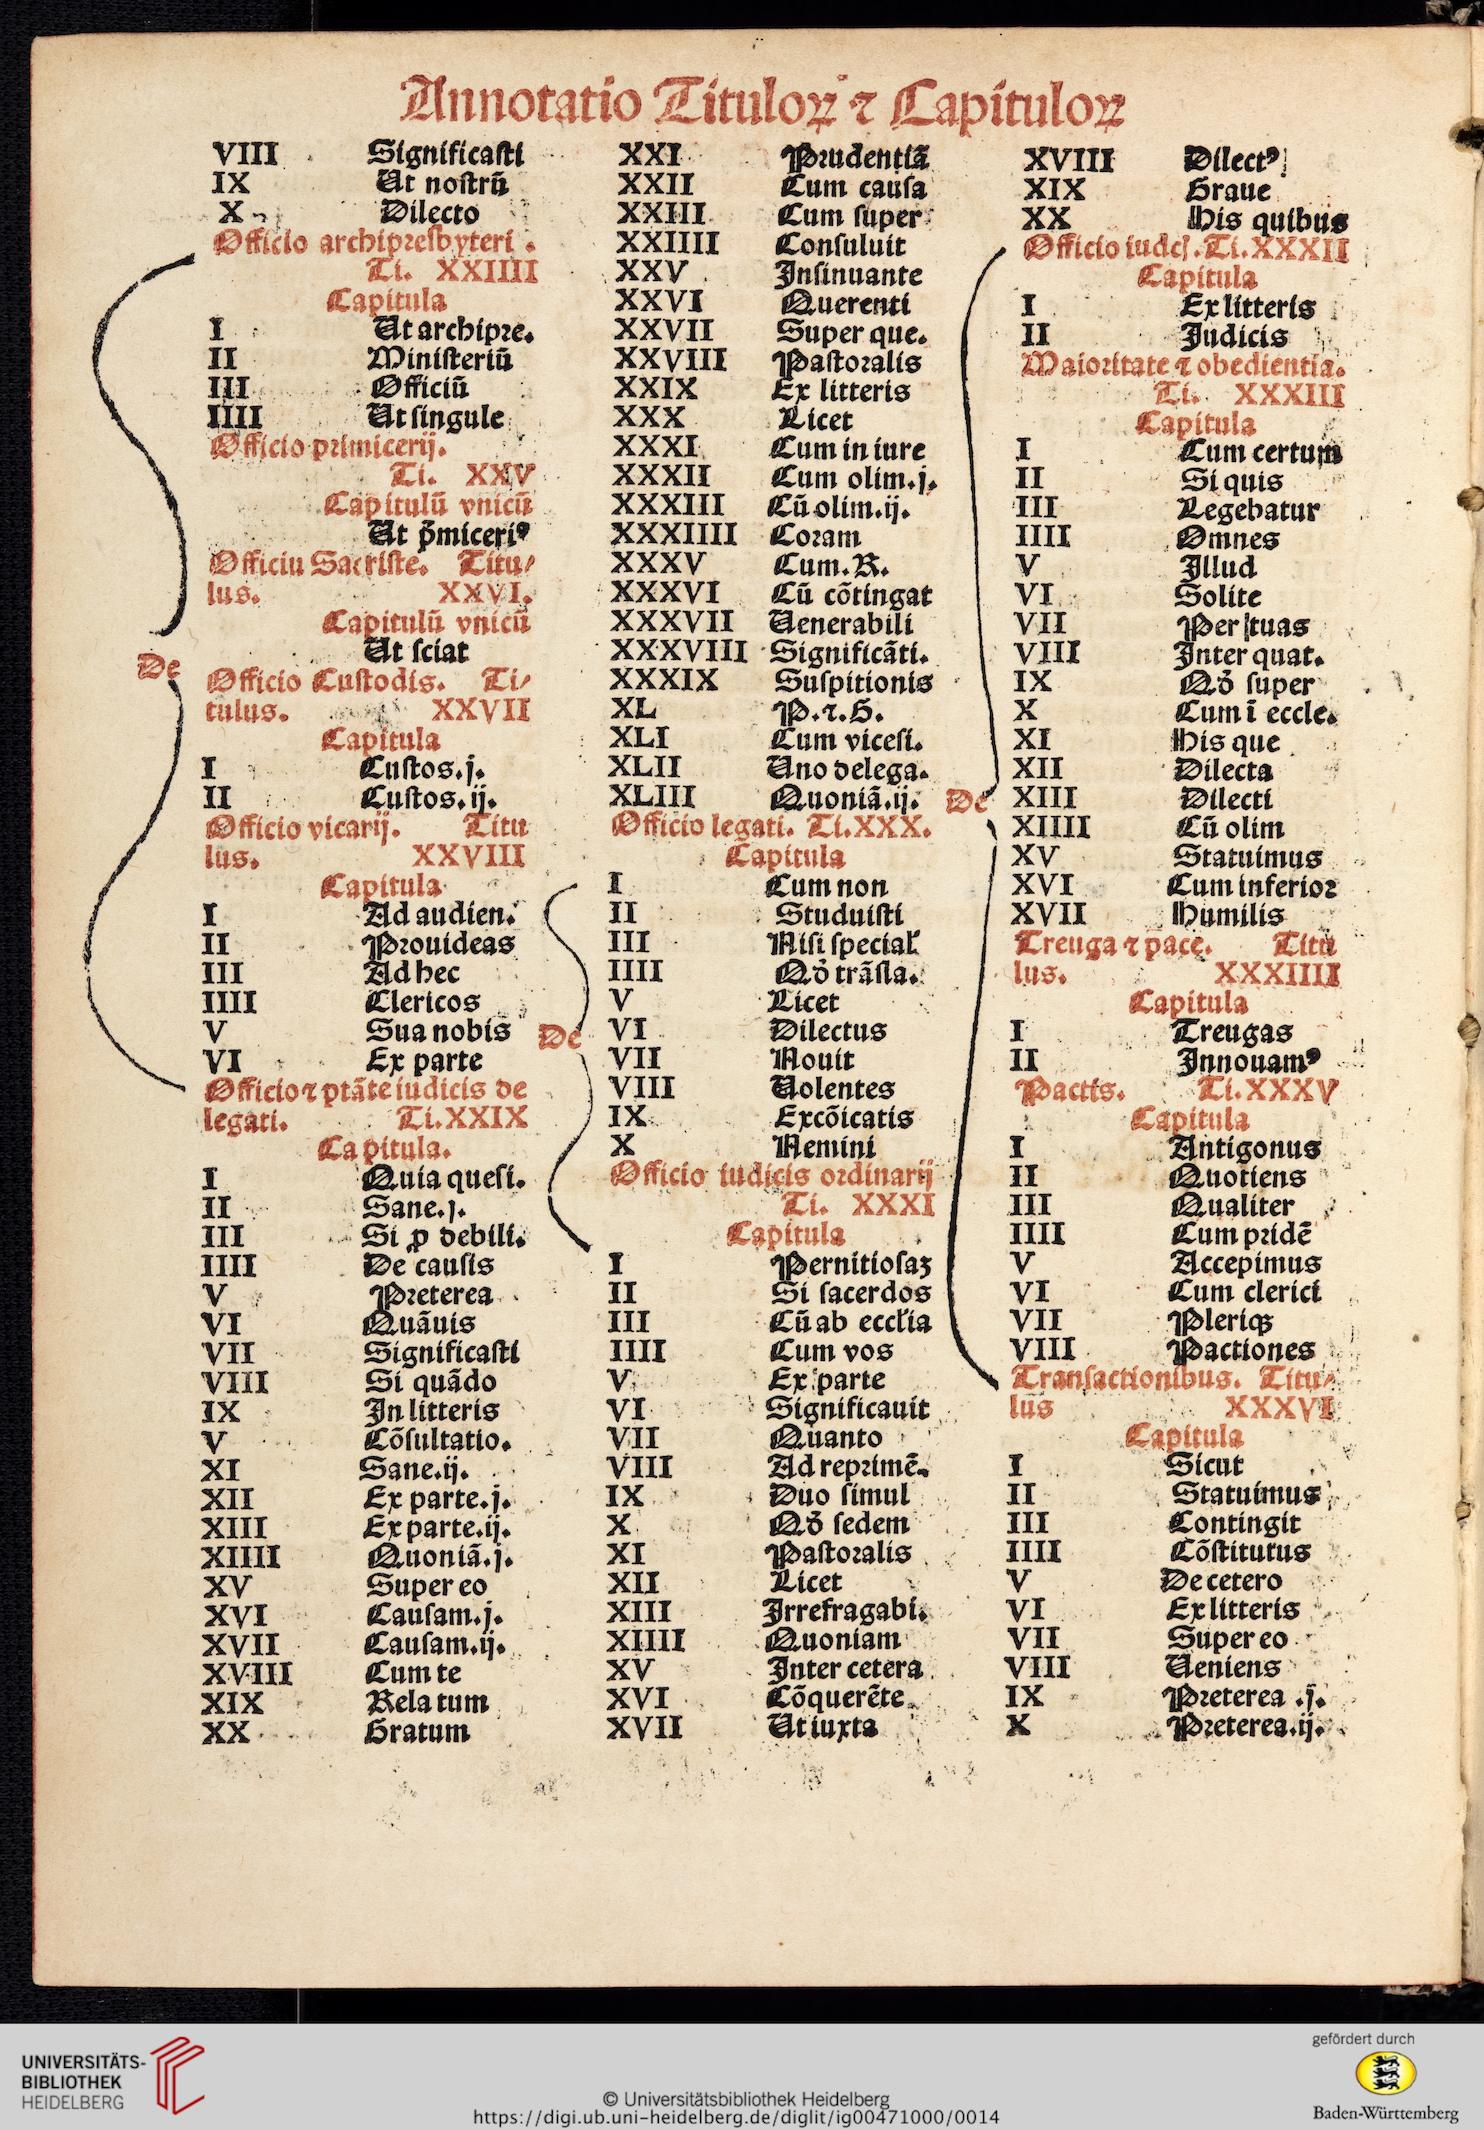 Annotatio Tituloꝝ ⁊ Capituloꝝ
VIII Significasti
IX Ut nostrũ
X Dilecto
Officio archipresbyteri .
Ti. XXIIII
Capitula
I Ut archipre.
II Ministeriũ
III Officiũ
IIII Ut singule
Officio primicerij.
Ti. XXV
Capitulũ vnicũ
Ut p̃miceriꝰ
Officiu Sacriste. Titu/
lus. XXVI.
Capitulũ vnicũ
Ut sciat
De
Officio Custodis. Ti/
tulus. XXVII
Capitula
I Custos.j.
II Custos.ij.
Officio vicarij. Titu
lus. XXVIII
Capitula
I Ad audien.
II Prouideas
III Ad hec
IIII Clericos
V Sua nobis
VI Ex parte
Officio ⁊ ptãte iudicis de
legati. Ti.XXIX
Capitula.
I Quia quesi.
II Sane.j.
III Si ꝓ debili.
IIII De causis
V Preterea
VI Quãuis
VII Significasti
VIII Si quãdo
IX In litteris
V Cõsultatio.
XI Sane.ij.
XII Ex parte.j.
XIII Ex parte.ij.
XIIII Quoniã.j.
XV Super eo
XVI Causam.j.
XVII Causam.ij.
XVIII Cum te
XIX Relatum
XX Gratum
XXI Prudentiã
XXII Cum causa
XXIII Cum super
XXIIII Consuluit
XXV Insinuante
XXVI Querenti
XXVII Super que.
XXVIII Pastoralis
XXIX Ex litteris
XXX Licet
XXXI Cum in iure
XXXII Cum olim.j.
XXXIII Cũ olim.ij.
XXXIIII Coram
XXXV Cum.R.
XXXVI Cũ cõtingat
XXXVII Uenerabili
XXXVIII Significãti.
XXXIX Suspitionis
XL P.⁊.G.
XLI Cum vicesi.
XLII Uno delega.
XLIII Quoniã.ij.
Officio legati. Ti.XXX.
Capitula
I Cum non
II Studuisti
III Nisi special̃
IIII Qõ trãsla.
V Licet
De
VI Dilectus
VII Nouit
VIII Uolentes
IX Excõicatis
X Nemini
Officio iudicis ordinarij
Ti. XXXI
Capitula
I Pernitiosaꝫ
II Si sacerdos
III Cũ ab eccl̃ia
IIII Cum vos
V Ex parte
VI Significauit
VII Quanto
VIII Ad reprimẽ.
IX Duo simul
X Qõ sedem
XI Pastoralis
XII Licet
XIII Irrefragabi.
XIIII Quoniam
XV Inter cetera
XVI Cõquerẽte
XVII Ut iuxta
XVIII Dilectꝰ
XIX Graue
XX His quibus
Officio iudcĩ.Ti.XXXII
Capitula
I Ex litteris
II Iudicis
Maioritate ⁊ obedientia.
Ti. XXXIII
Capitula
I Cum certum
II Si quis
III Legebatur
IIII Omnes
V Illud
VI Solite
VII Per tuas
VIII Inter quat.
IX Qõ super
X Cum ĩ eccle.
XI His que
XII Dilecta
De
XIII Dilecti
XIIII Cũ olim
XV Statuimus
XVI Cum inferior
XVII Humilis
Treuga ⁊ pace. Titu
lus. XXXIIII
Capitula
I Treugas
II Innouamꝰ
Pactis. Ti.XXXV
Capitula
I Antigonus
II Quotiens
III Qualiter
IIII Cum pridẽ
V Accepimus
VI Cum clerici
VII Pleriqꝫ
VIII Pactiones
Transactionibus. Titu/
lus XXXVI
Capitula
I Sicut
II Statuimus
III Contingit
IIII Cõstitutus
V De cetero
VI Ex litteris
VII Super eo
VIII Ueniens
IX Preterea .j.
X Preterea.ij.
UNIVERSITÄTS-
BIBLIOTHEK
HEIDELBERG
© Universitätsbibliothek Heidelberg
https://digi.ub.uni-heidelberg.de/diglit/ig00471000/0014
gefördert durch
Baden-Württemberg